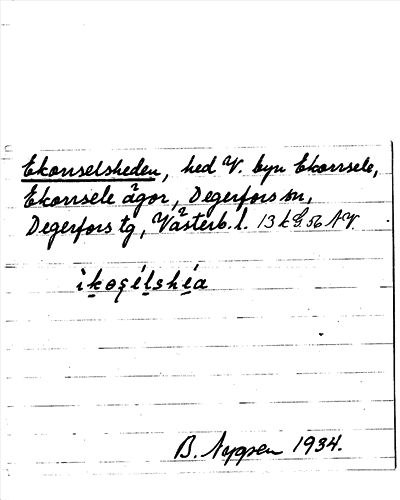 Ekorrselsheden, hed V. byn Ekorrsele,
Ekorrsele ägor, Degerfors sn,
Degerfors tg, Västerb. l. 13 k
ìkoşélshéa
B. Nygren 1934.